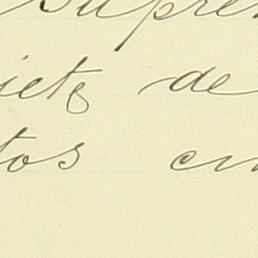 Supre
iety de
tos en